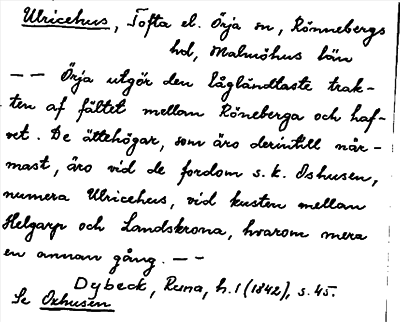 Ulricehus, Tofta el. Örja sn, Rönnebergs
hd, Malmöhus län
— — Örja utgör den lågländtaste trak-
ten af fältet mellan Röneberga och haf-
vet. De ättehögar, som äro derintill när-
mast, äro vid de fordom s.k. Oshusen,
numera Ulricehus, vid kusten mellan
Helgarp och Landskrona, hvarom mera
en annan gång. — —
Dybeck, Runa, h.1 (1842), s.45.
Se Oxhusen